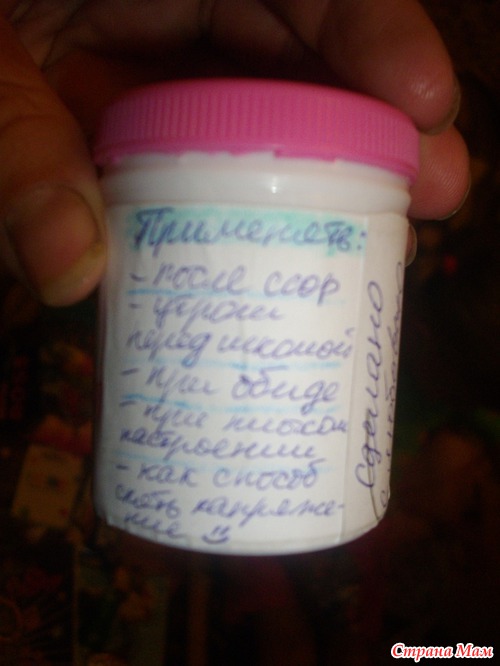 Применять:
- после ссор
- утром
перед школой
- при обиде
- при плохом
настроении
- как способ
снять напряже-
ние
Сделано
с любовью
Страна Мам